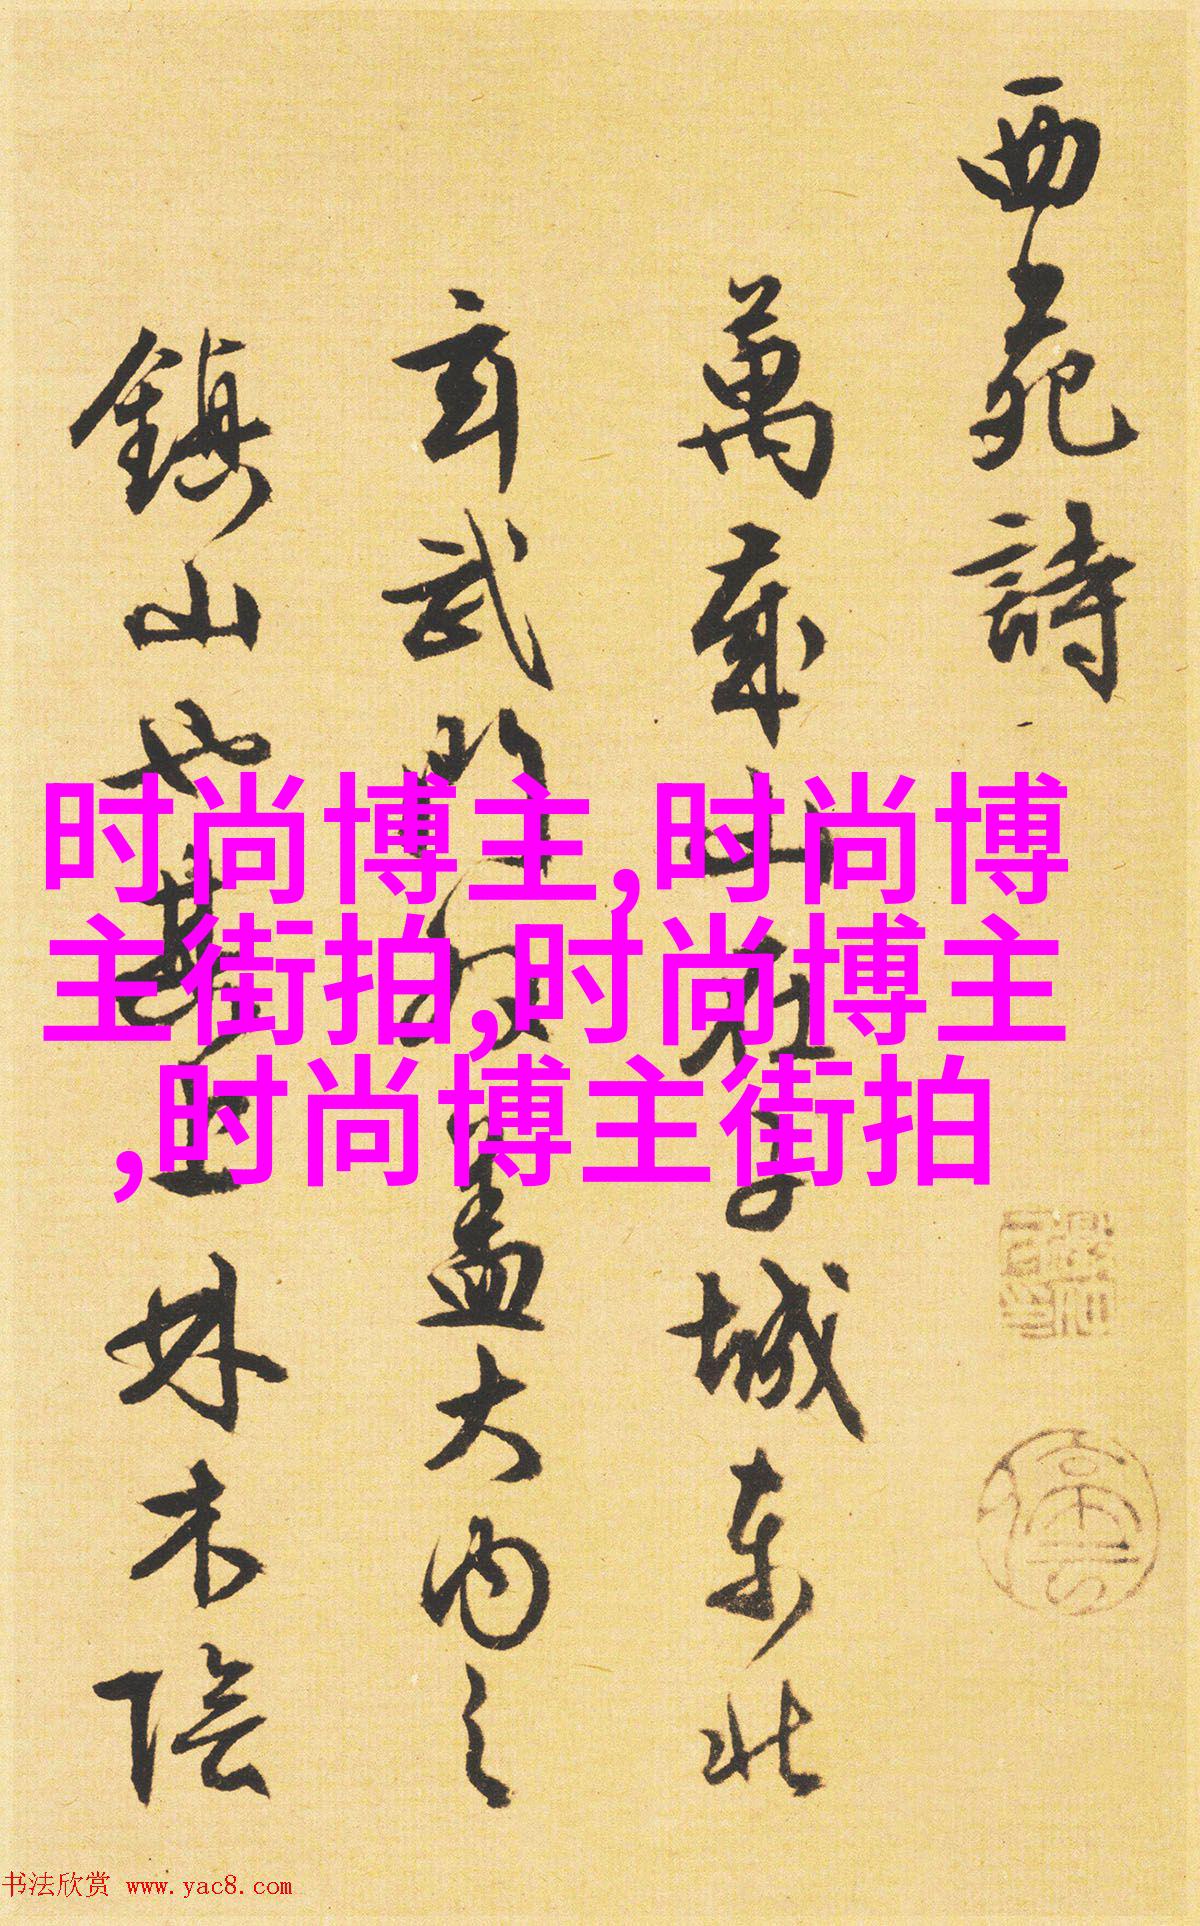 西苑詩
萬歲山在子城東北
玄武門外蓋大内之
鎮山也其上林木陰
时尚博主,时尚博
主街拍,时尚博主
,时尚博主街拍
书法欣赏 www.yac8.com